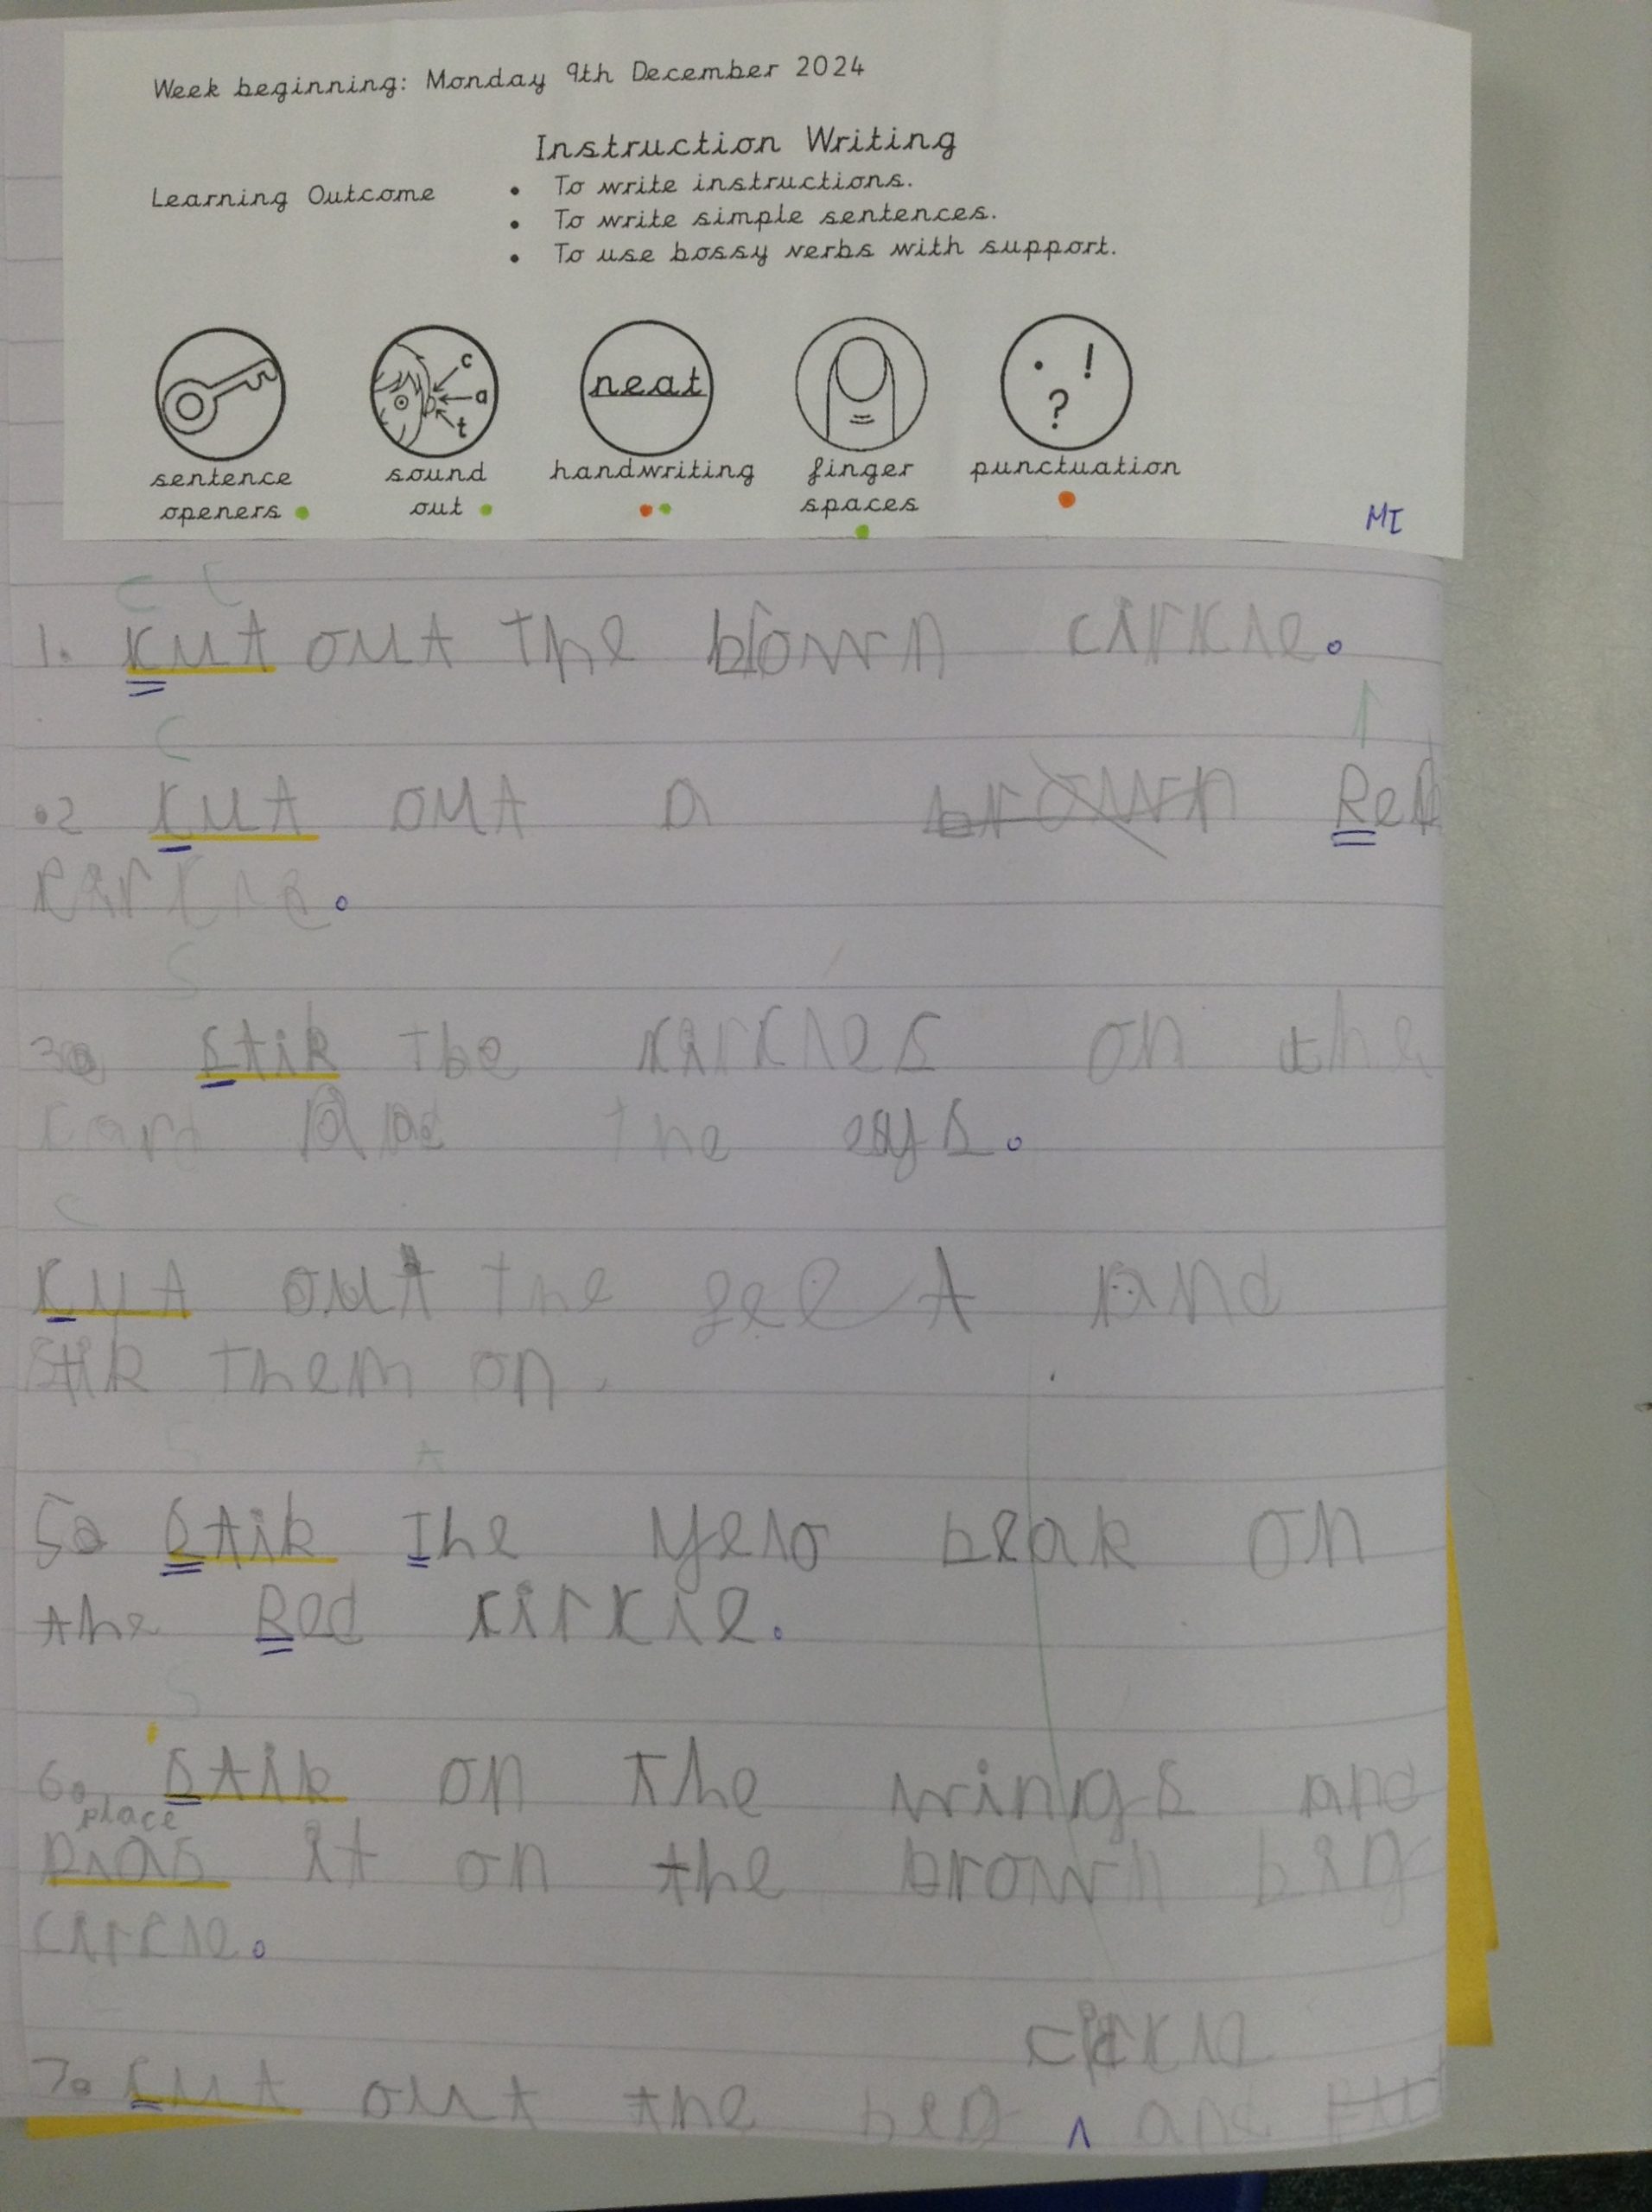 Week beginning: Monday 9th December 2024
Instruction Writing
Learning Outcome
• To write instructions.
• To write simple sentences.
• To use bossy verbs with support.
c
a
t
neat
. ! ?
sentence openers
sound out
handwriting
finger spaces
punctuation
MI
c t
1. kut out the brown cirkle.
c r
.2 kut out a brown Red
cirkle.
s
3. stik the kirkles on the
card and the eys.
c
kut out the feet and
stik them on.
s t
5. stik The yelo beak on
the Red kirkle.
s
6. stik on the wings and
place
plas it on the brown big
circle.
cirkle
7. cut out the beg ^ and